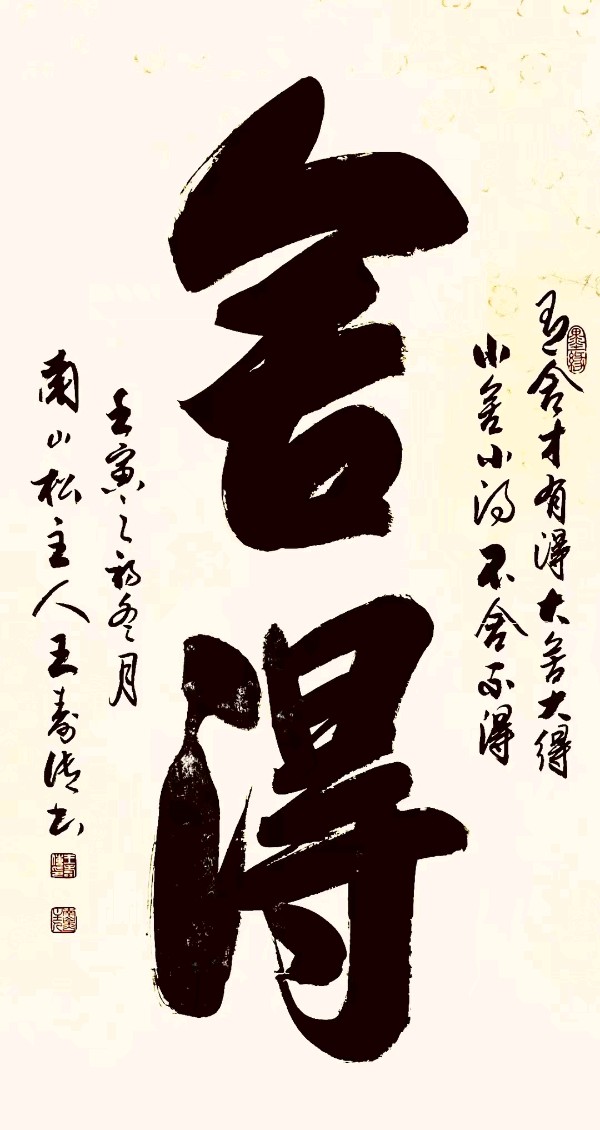 有舍才有得大舍大得
小舍小得不舍不得
舍得
壬寅之初冬月
南山松主人王寿清书
墨缘